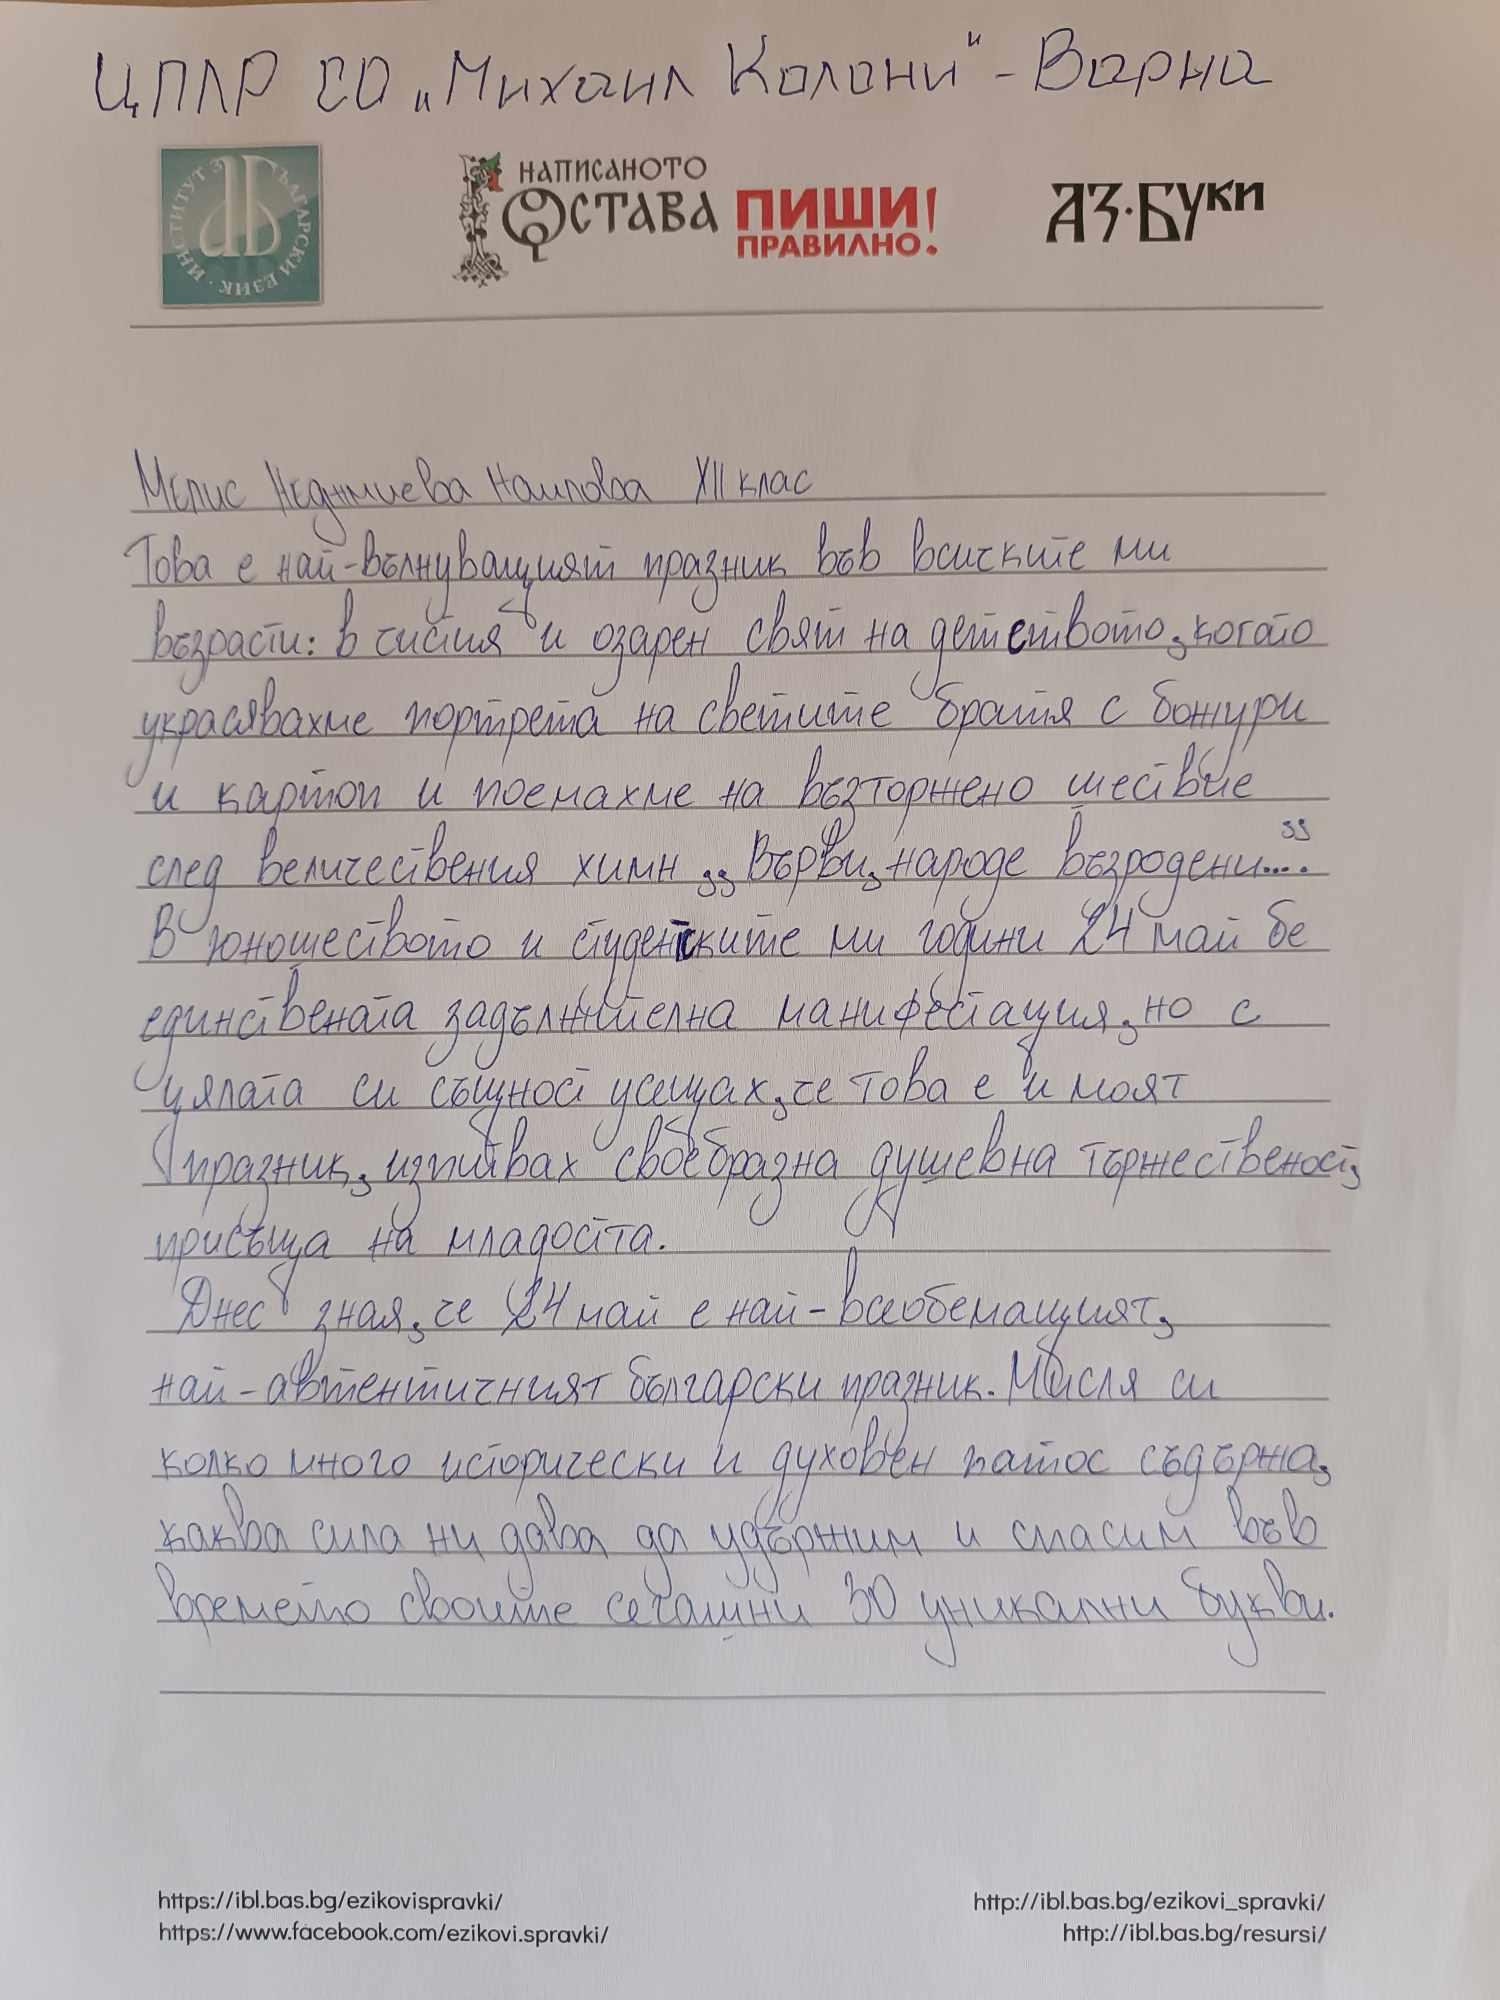 ЦПЛР СО „Михаил Колони“ - Варна
ИНСТИТУТ ЗА БЪЛГАРСКИ ЕЗИК
НАПИСАНОТО
ОСТАВА ПИШИ
ПРАВИЛНО!
АЗ·БУКИ
Мелис Неджмиева Наилова XII клас
Това е най-вълнуващият празник във всичките ми
възрасти: в чистия и озарен свят на детството, когато
украсявахме портрета на светите братя с божури
и картоп и поемахме на възторжено шествие
след величествения химн „Върви, народе възродени....“
В юношеството и студентските ми години 24 май бе
единствената задължителна манифестация, но с
цялата си същност усещах, че това е и моят
празник, изпивах своебразна душевна тържественост,
присъща на младостта.
Днес зная, че 24 май е най-всеобемащият,
най-автентичният български празник. Мисля си
колко много исторически и духовен патос съдържа,
каква сила ни дава да удържим и спасим във
времето своите сегашни 30 уникални букви.
https://ibl.bas.bg/ezikovispravki/ http://ibl.bas.bg/ezikovi_spravki/
https://www.facebook.com/ezikovi.spravki/ http://ibl.bas.bg/resursi/